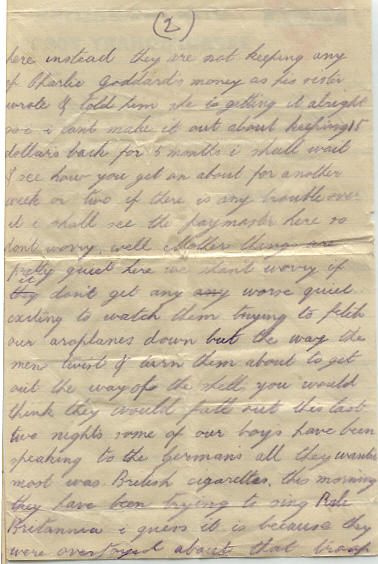 (2)
here instead they are not keeping any
of Charlie Goddards money as his sister
wrote & told him she is getting it alright
so i cant make it out about keeping 15
dollars back for 5 months i shall wait
& see how you get on about for another
week or two if there is any trouble over
it i shall see the paymaster here so
dont worry, well Mother things are
pretty quiet here we shant worry if
it dont get any any worse quiet
exciting to watch them trying to fetch
our aroplanes down but the way the
men twist & turn them about to get
out the way of the shell you would
think they would fall out this last
two nights some of our boys have been
speaking to the Germans all they wanted
most was British cigarettes, this morning
they have been trying to sing Rule
Britannia i guess it is because they
were overjoyed about that troop